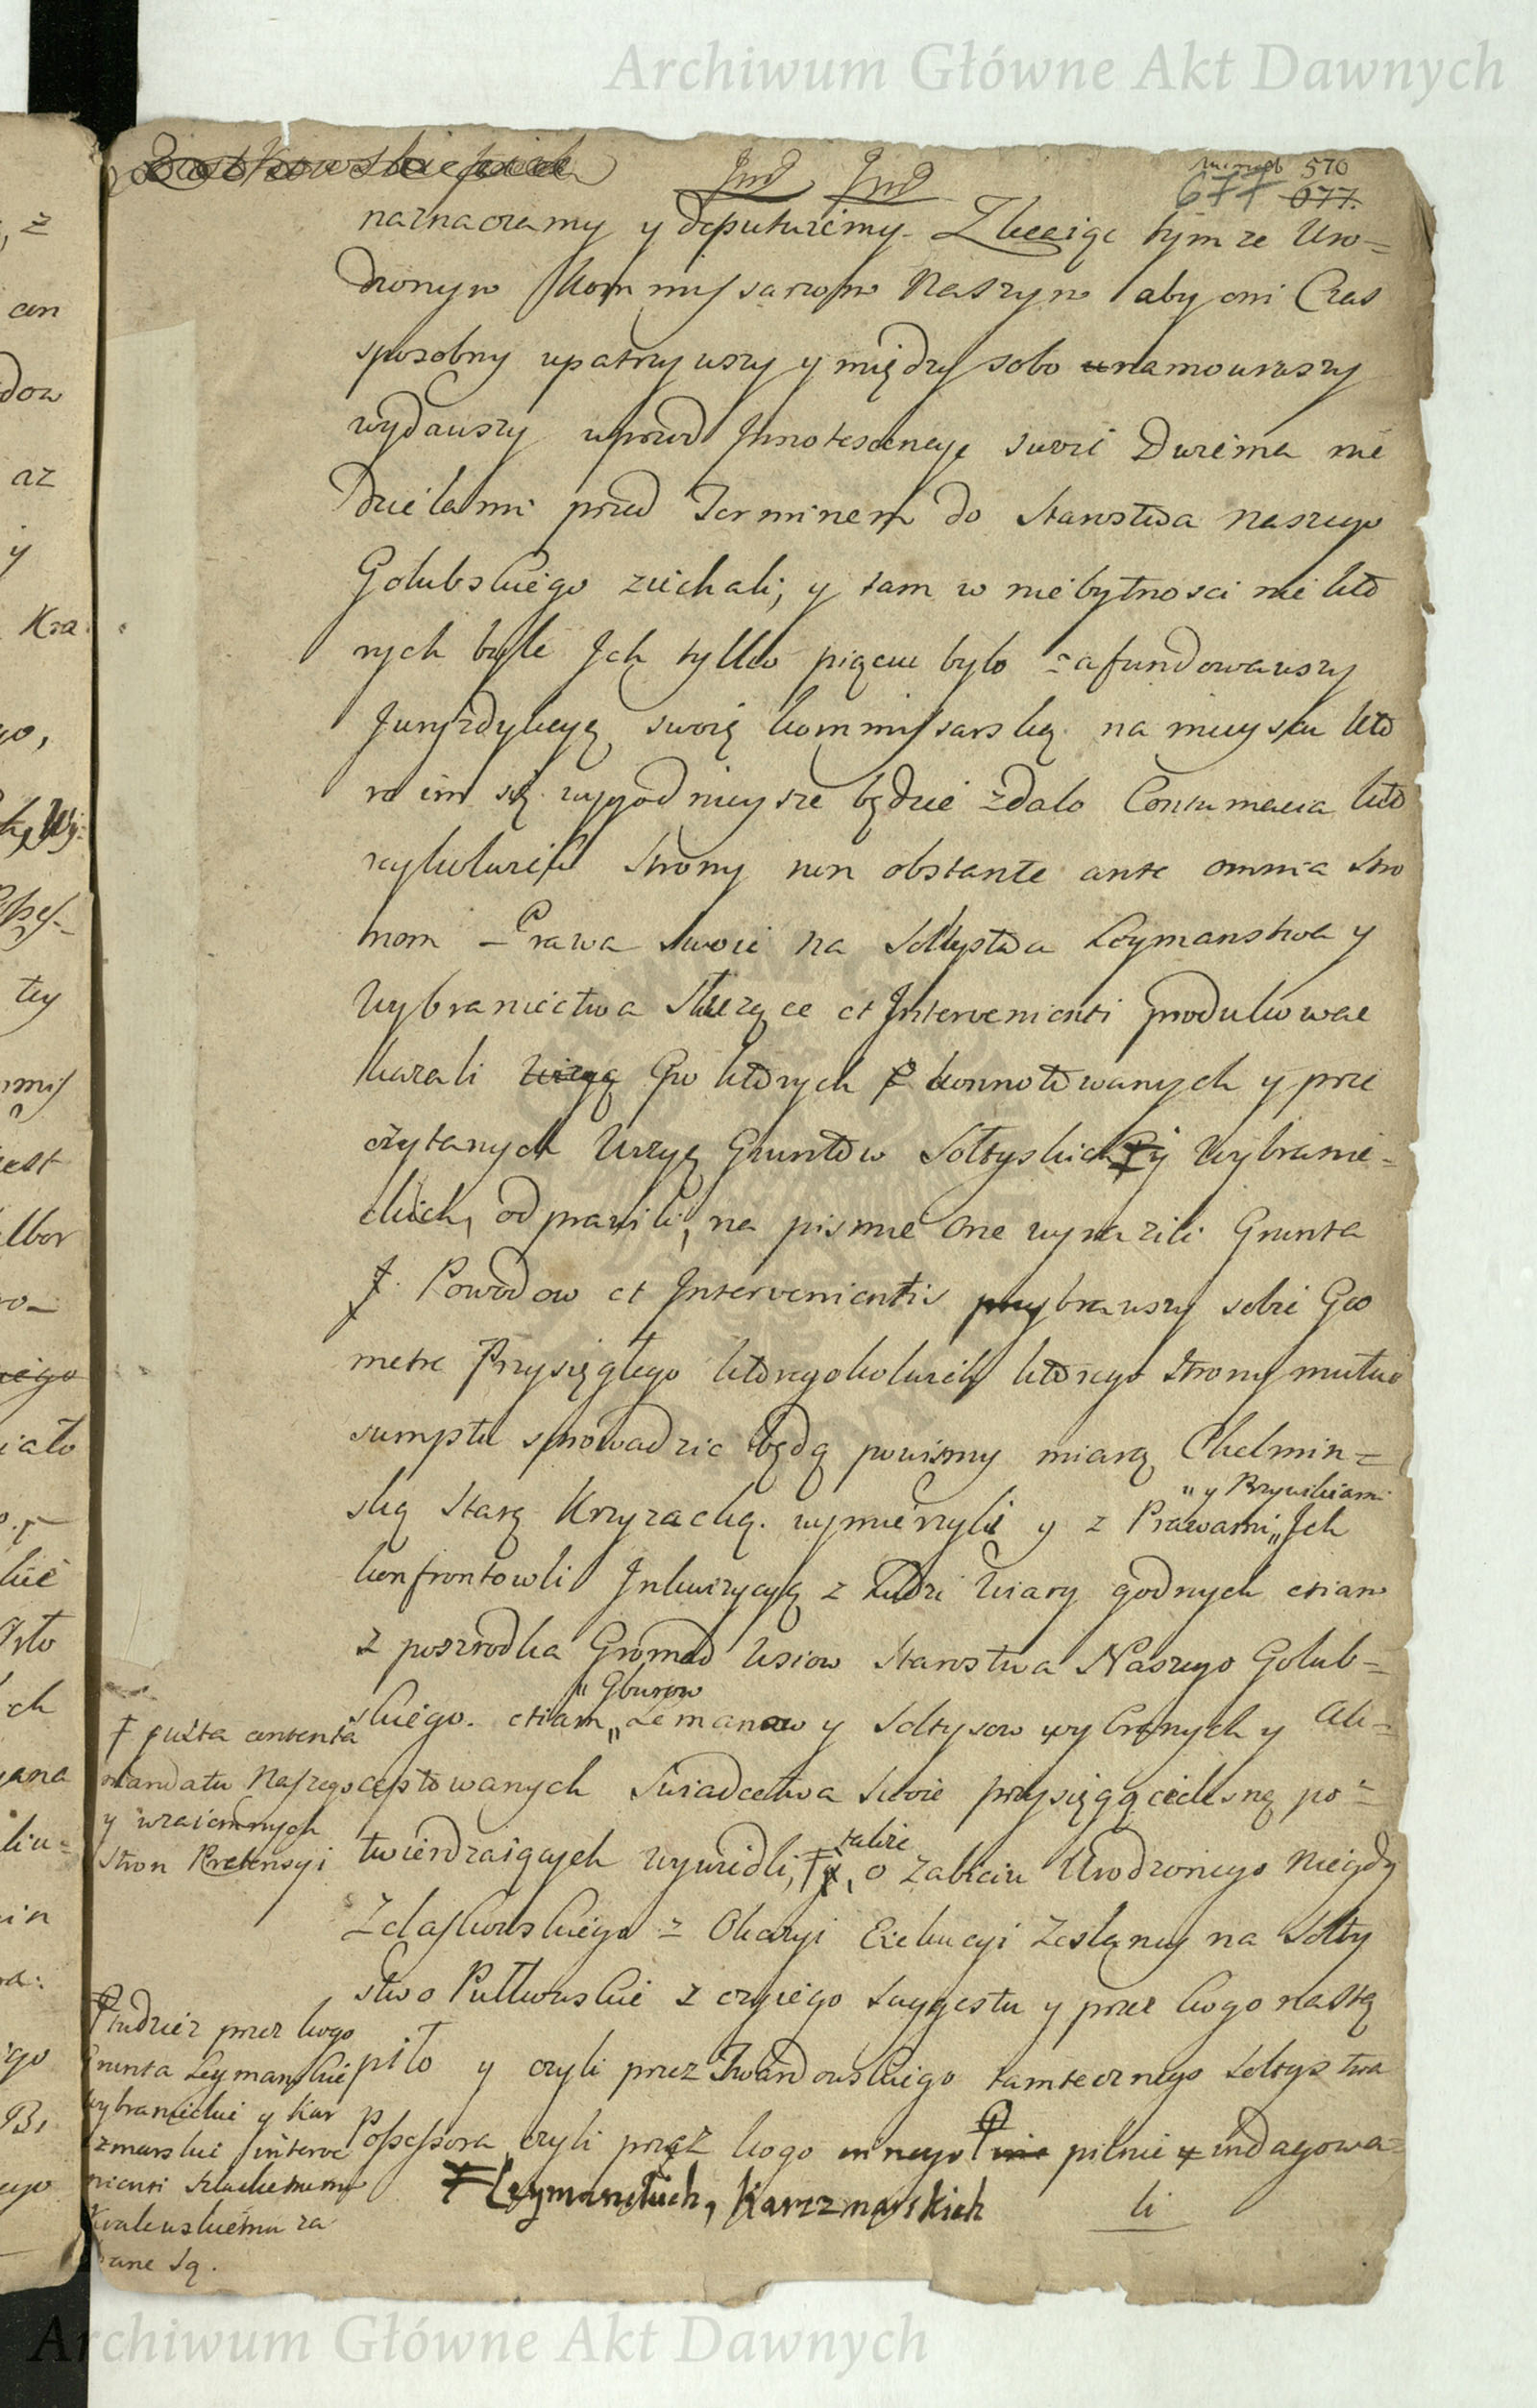 Archiwum Główne Akt Dawnych
570
677 677.
naznaczamy y deputuiemy. Zlecaiąc tymze Uro=
dzonym Kommissarzom Naszym aby oni Czas
sposobny upatrzywszy y między sobo namowiwszy
wydawszy wprzod Innotescencye swoie Dwiema nie
dzielami przed Terminem do Starostwa naszego
Golubskiego ziechali, y tam w niebytnosci nie kto
rych byle Ich tylko pięciu było zafundowawszy
Juryzdykcyą swoię kommissarską na mieyscu kto
re im się wygodnieysze będzie zdało Contumacia kto
reykolwiek Strony non obstante ante omnia stro
nom Prawa swoie na Sołtystwa Leymanstwa y
Wybraniectwa służące et Intervenienti produkowac
kazali wizyą Po ktorych konnotowanych y prze
czytanych Wizyą Gruntow Sołtyskich ‡ y Wybranie=
ckich, odprawili, na pismie one wyrazili Grunta
J. Powodow et Intervenientis przybrawszy sobie Geo
metrę Przysięgłego ktoregokolwiek ktorego Strony mutuo
sumptu sprowadzic będą powinny miarą Chelmin=
„ y Przywileiami
ską Starą Krzyzacką. wymierzyli y z Prawami „ Ich
konfrontowli Inkwizycyą z Ludzi Wiary godnych etiam
z poszrodka Gromad Wsiow Starostwa Naszego Golub=
„ Gburow
skiego. etiam „ Lemanow y Sołtysow wybranych y Ak=
ceptowanych Swiadectwa swoie przysięgą cielesną po=
także
twierdzaiących wywiedli, Ŧ y, o Zabiciu Urodzonego Niegdy
Zdaskowskiego z Okazyi Exekucyi Zesłaney na Sołty
stwo Pułkowskie z czyiego suggestu y przez kogo nastą
piło y czyli przez Twardowskiego tamtecznego Sołtystwa
Possessora czyli przez kogo innego pilnie indagowa=
li
‡ Leymanskich, Karczmarskich
Ŧ juxta contenta
mandatu Naszego
y wzaiemnych
stron Pretensyi
Tudziez przez kogo
Grunta Leymanskie
wybranieckie y Kar
czmarskie interve
nienti Szlachetnemu
Krakowskiemu za
brane są.
Archiwum Główne Akt Dawnych